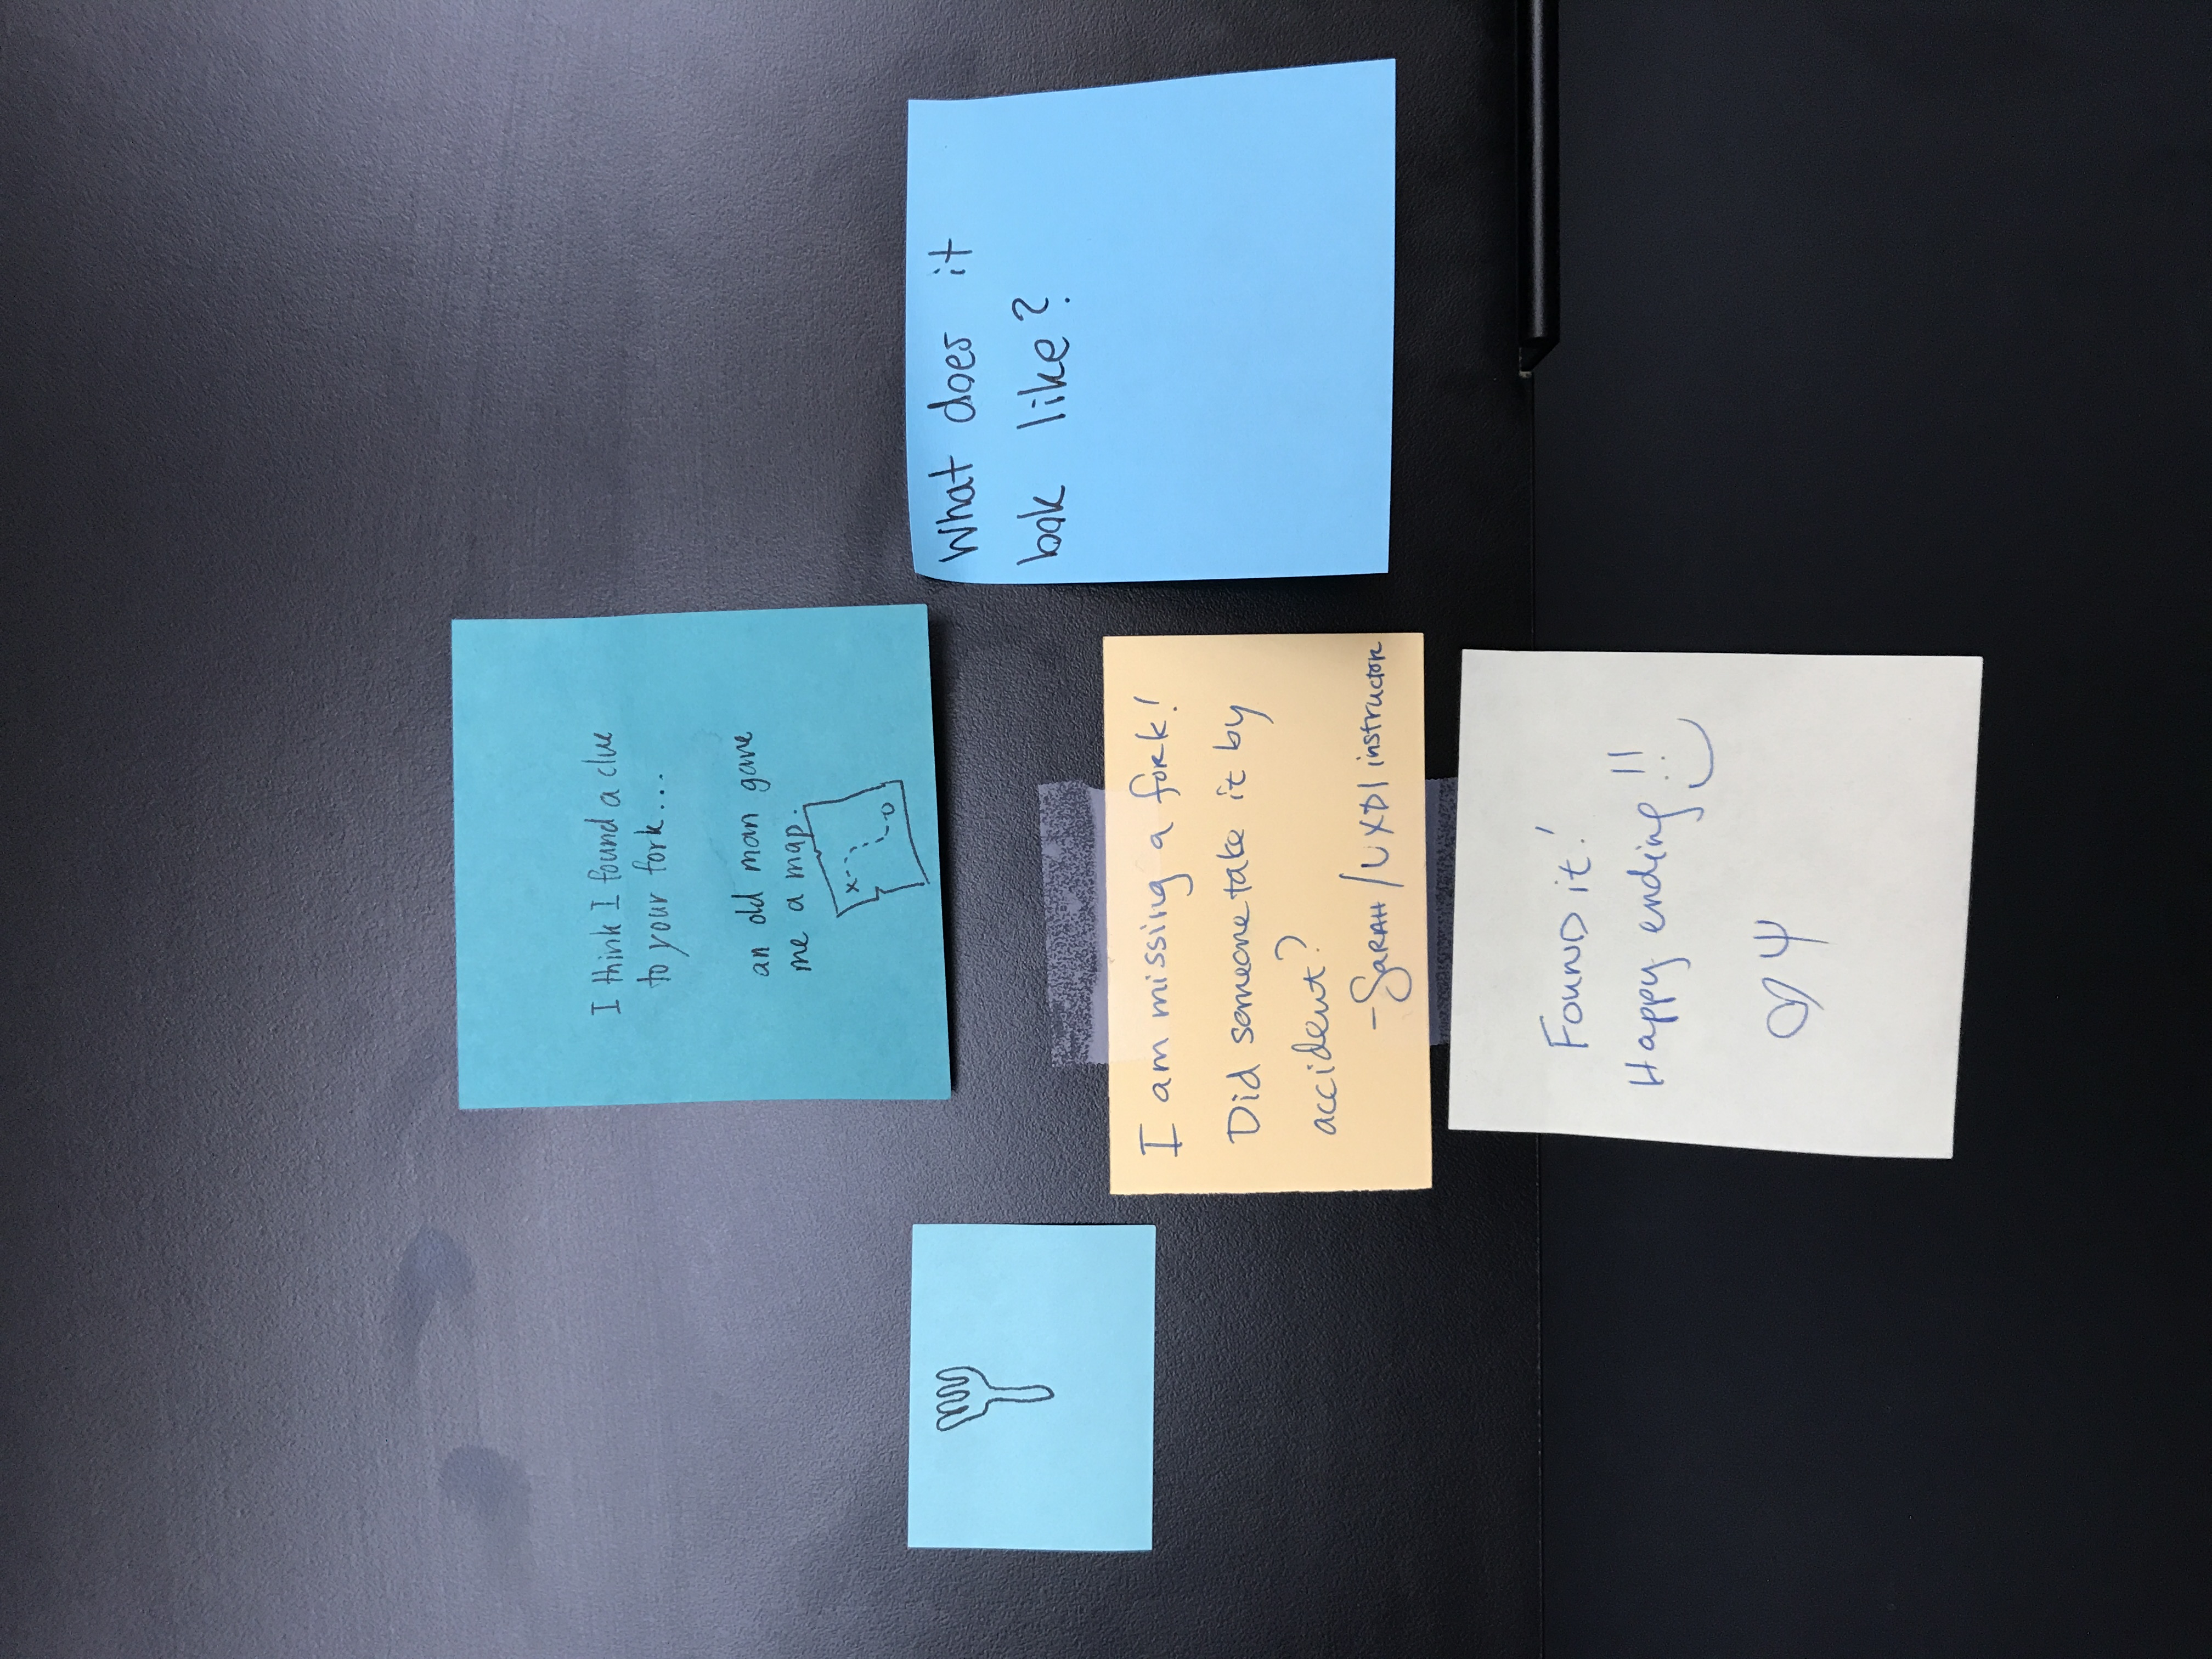 I think I found a clue
to your fork...
an old man gave
me a map.
What does it
look like?
I am missing a fork!
Did someone take it by
accident?
- SARAH / UXDI instructor
FOUND it!
Happy ending!!